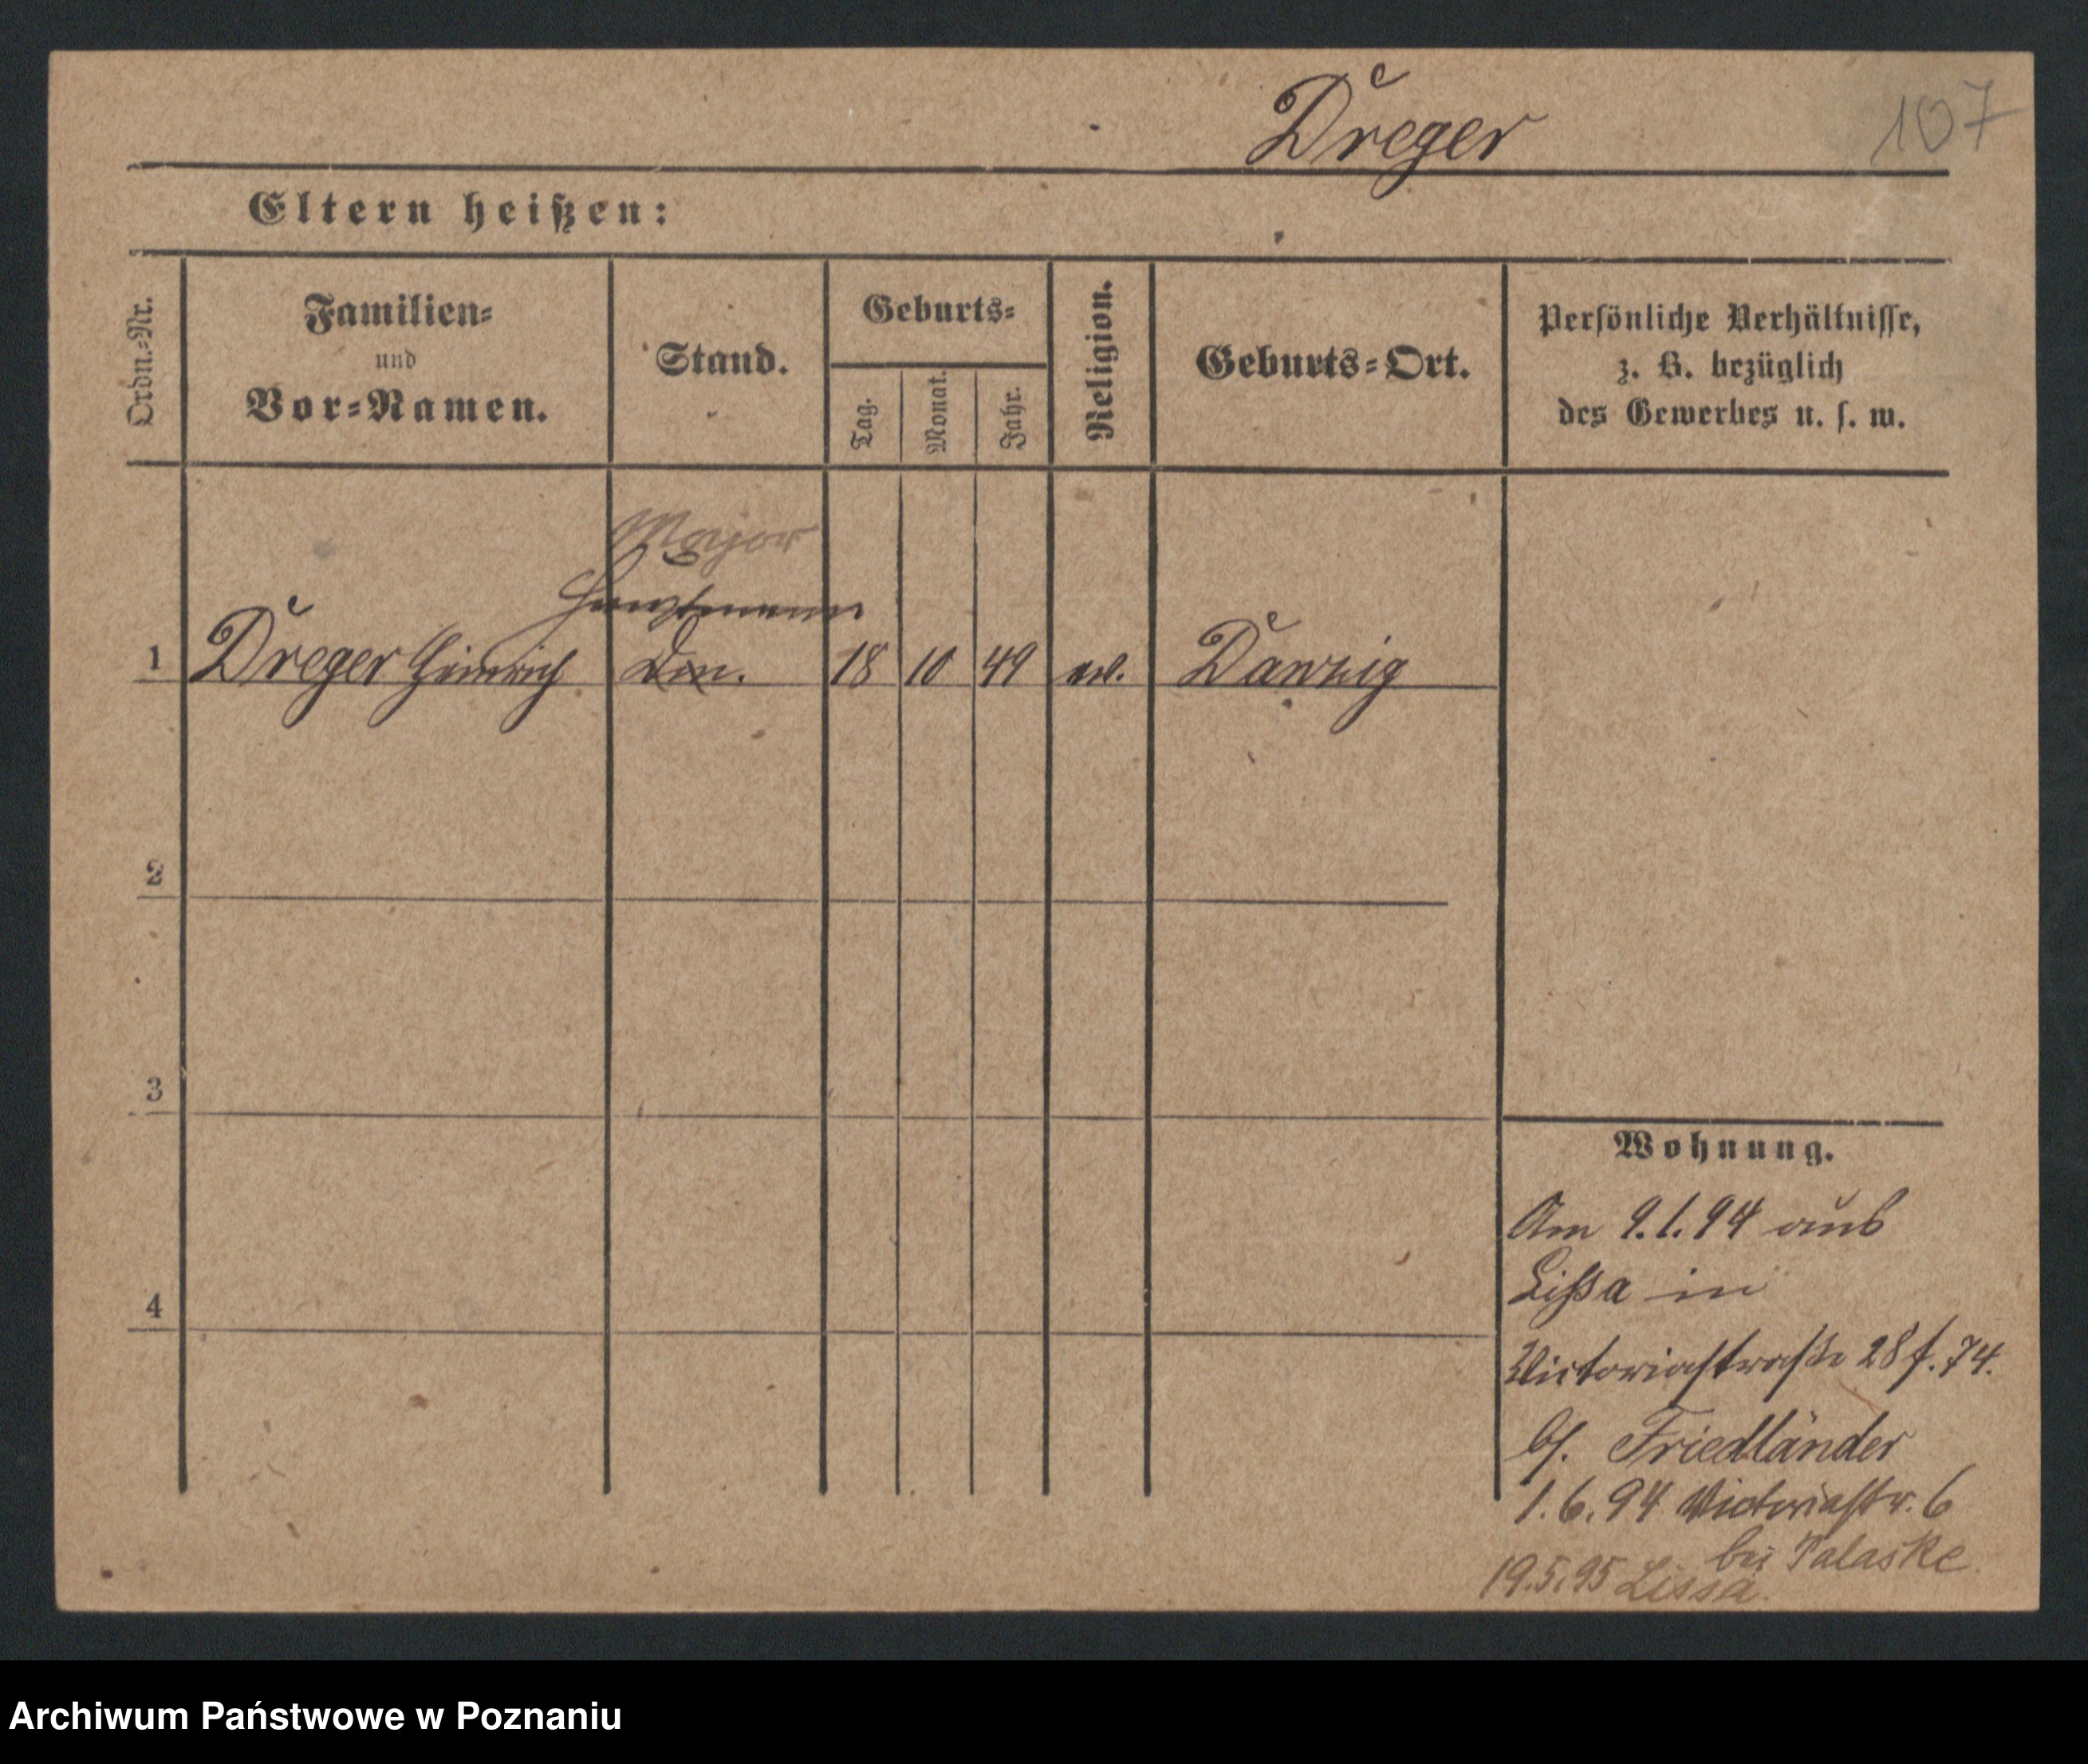 Dreger
107
Eltern heißen:
Ordn.-Nr.
Familien-
und
Vor-Namen.
Stand.
Geburts-
Tag.
Monat.
Jahr.
Religion.
Geburts-Ort.
Persönliche Verhältnisse,
z. B. bezüglich
des Gewerbes u. s. w.
Major
Hauptmann
1 Dreger Heinrich 18 10 49 Danzig
2
3
4
Wohnung.
Am 9.1.94 aus
Lissa in
Victoriastraße 28 f. 74.
bei Friedländer
1.6.94 Victoriastr. 6
bei Palaske
19.5.95 Lissa.
Archiwum Państwowe w Poznaniu